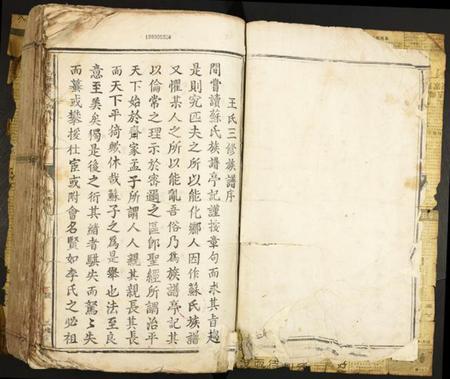 王氏三修族譜序
間嘗讀蘇氏族譜亭記謹按章句而求其旨趨
是則究匹夫之所以能化鄉人因作蘇氏族譜
又懼某人之所以能亂吾俗乃為族譜亭記其
以倫常之理示於審邇之區即聖經所謂治平
天下始於齋家孟子所謂人人親其親長其長
而天下平猗歟休哉蘇子之為是舉也法至良
意至美矣獨是後之衍其緒者騏失而駕失
而纂或攀援仕宦或附會名賢如李氏之必祖